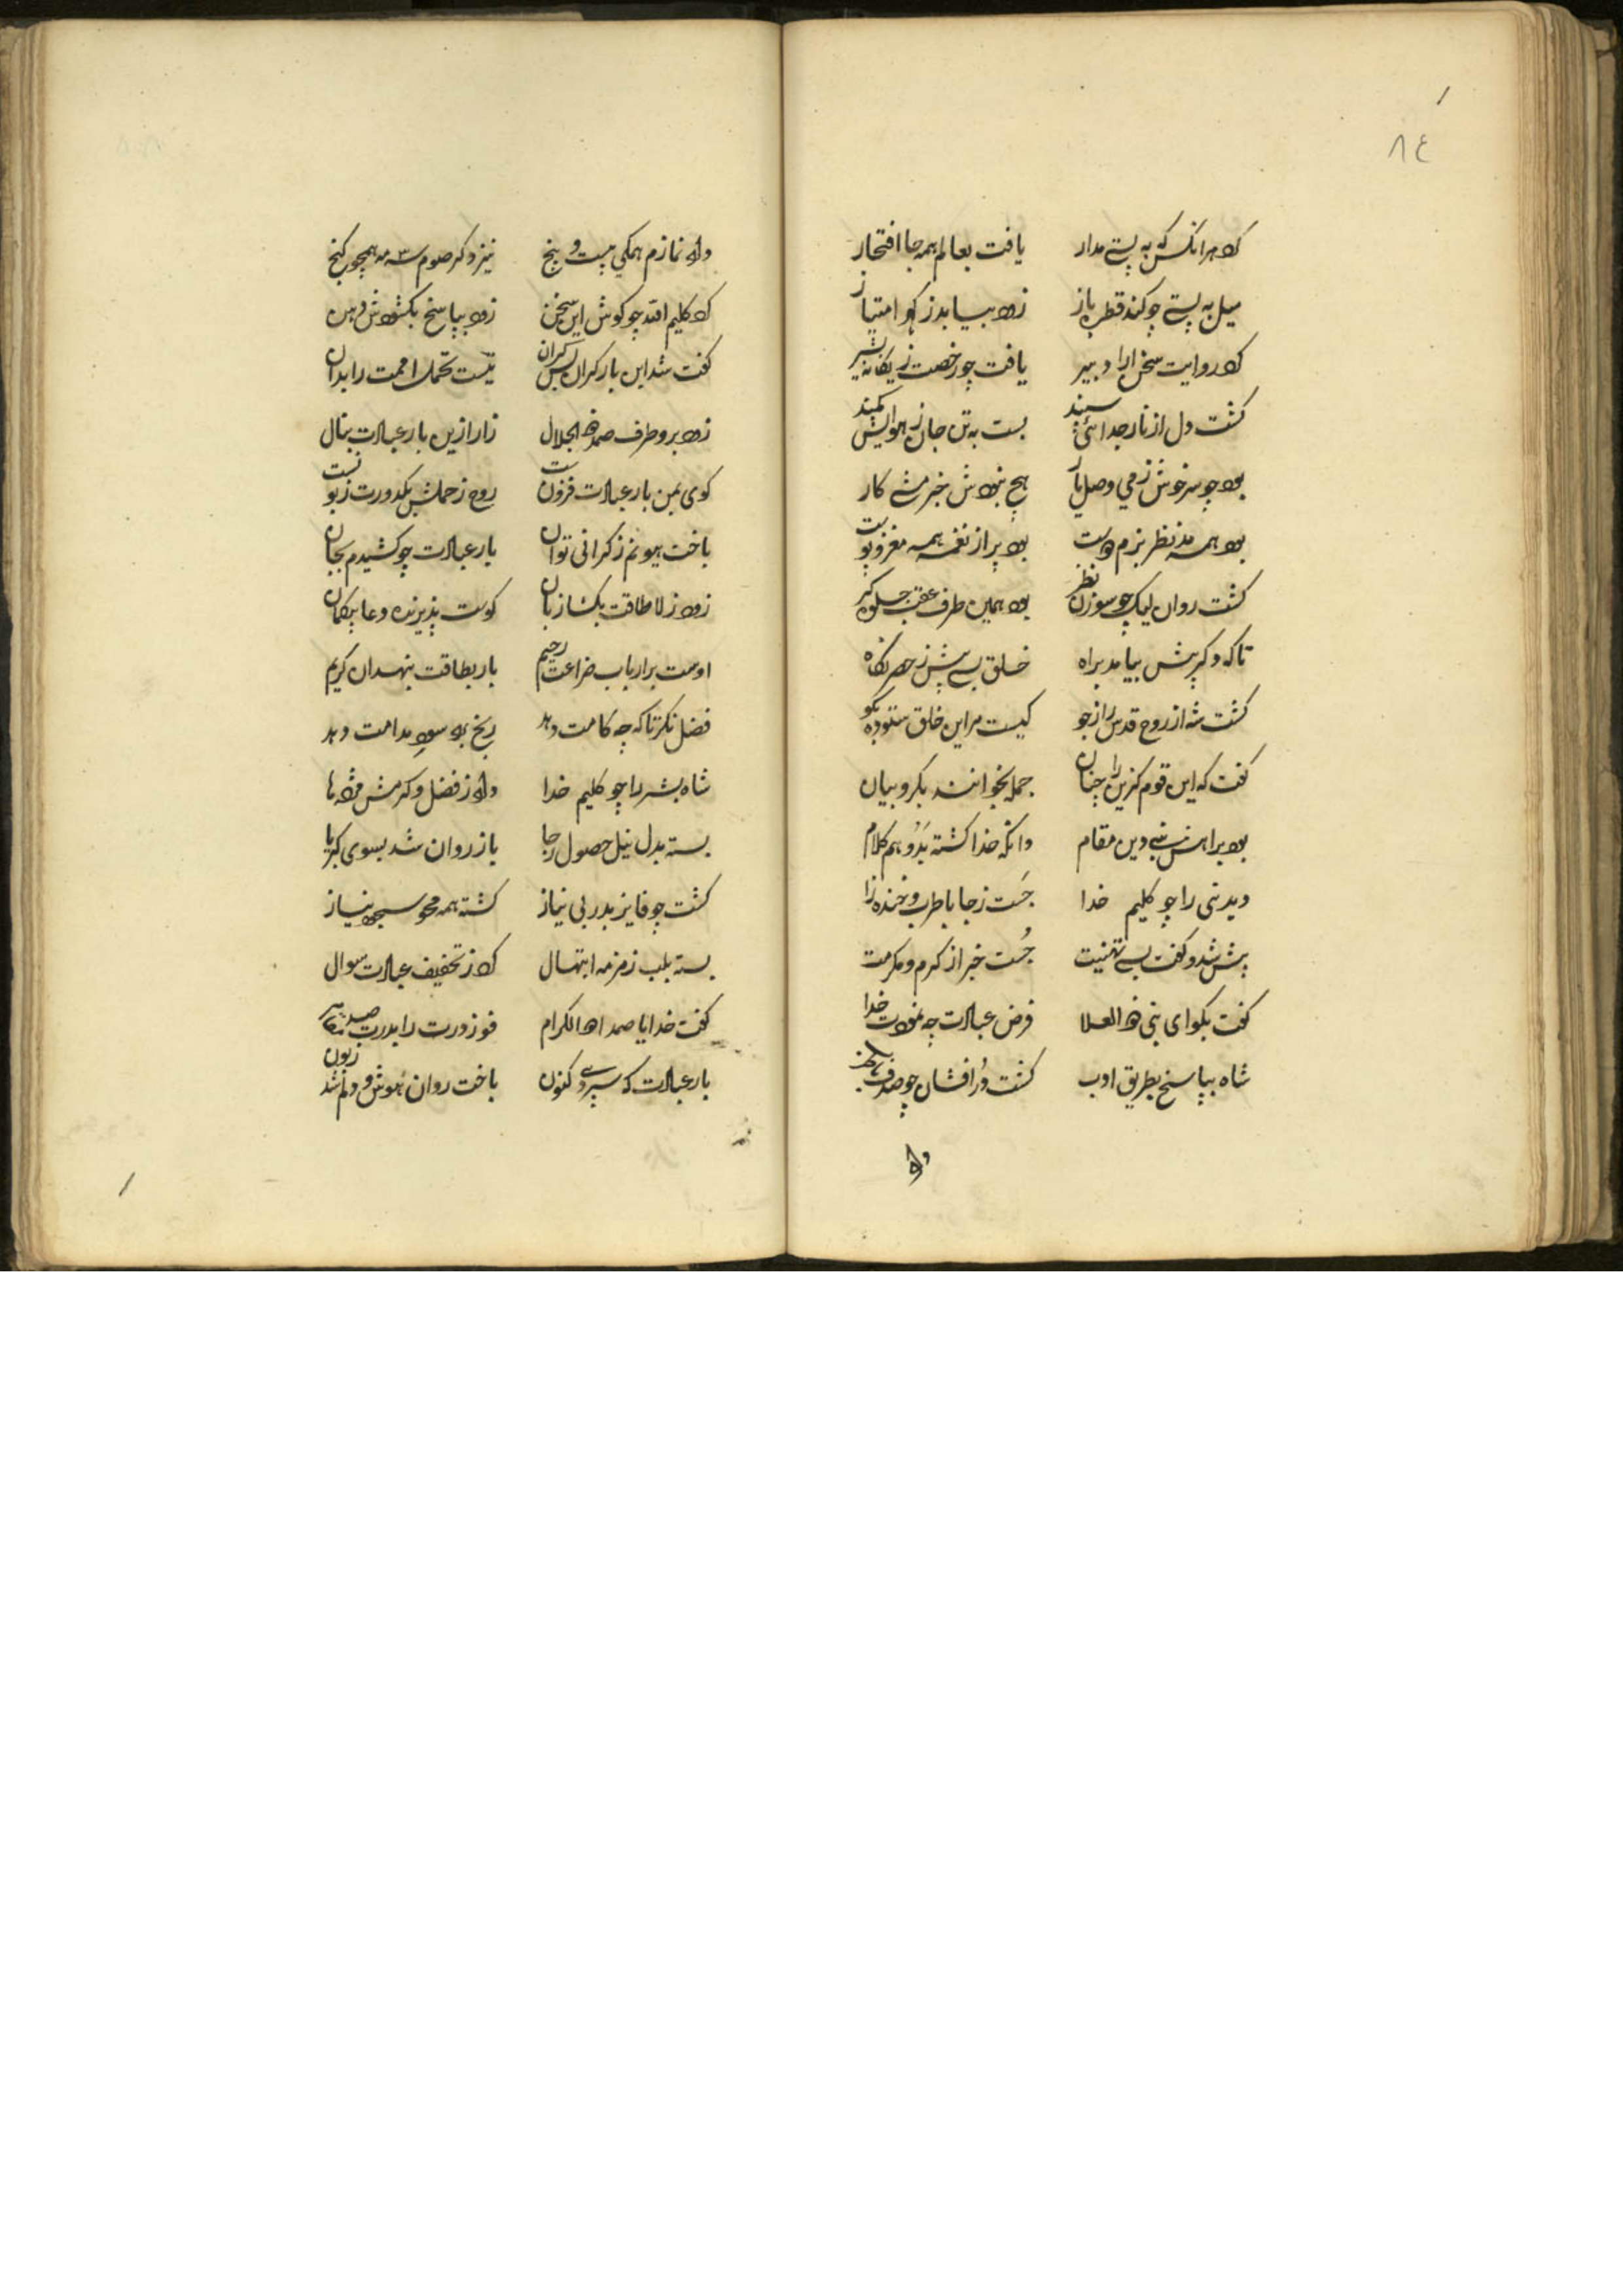 ٨٤
کرد هر انکس که به پستی مدار یافت بعالم همه جا افتخار
میل به پستی چو کند قطره باز زود بیابد ز کهر امتیاز
کرد روایت سخن ارا دبیر یافت چو رخصت ز یکانه بشیر
کشت دل از نار جدائی سپند بست به تن جان ز هوایش کمند
بود چو سرخوش ز می وصل یار هیچ نبودش خبر مشت کار
بود همه مد نظر بزم دوست بود پر از نغمه همه مغز و پوست
کشت روان لیک چو سوزن نظر بود همین طرف عقب جلوه کر
تا که دکر پیش بیامد براه خلق بسی پیش ز حصر نکاه
کشت شه از روح قدس راز جو کیست مر این خلق ستوده بکو
کفت که این قوم کزین را چنان جمله بخوانند بکروبیان
بود براهش نبی دین مقام وانکه خدا کشته بدو هم کلام
دید نبی را چو کلیم خدا جست ز جا با طرب و خنده زا
پیش شد و کفت بسی تهنیت جست خبر از کرم و مکرمت
کفت بکو ای نبی ذو العلا فرض عبادت چه نمودت خدا
شاه بپاسخ بطریق ادب کشت در افشان چو صدف
داد
داد نمازم همکی بیست و پنج نیز دکر صوم سه مه همچو کنج
کرد کلیم افتد چو کوش این سخن زود بپاسخ بکشودش دهن
کفت شد این بار کران بس کران نیست تحمل امتت را بدان
زود برو طرف صمد ذو الجلال زار ازین بار عبادت بنال
کوی بمن بار عبادت فزونست روح ز حملش بکدورت زبونست
باخت هیونم ز کرانی توان بار عبادت چو کشیدم بجان
زود ز لا طاقت بکشا زبان کوست پذیرنده دعا بیکمان
اوست بر ارباب ضراعت رحیم بار بطاقت بنهد ان کریم
فضل نکر تا که چه کامت دهد ربح بود سود مدامت دهد
شاه بشر را چو کلیم خدا داد ز فضل و کرمش مژده ها
بسته بدل نیل حصول رجا باز روان شد بسوی کبریا
کشت چو فایز بدر بی نیاز کشته همه محو سجود نیاز
بسته بلب زمزمه ابتهال کرد ز تخفیف عبادت سوال
کفت خدایا صمدا ذا الکرام فوز درت را بدرت صد
بار عبادت که سپردی کنون باخت روان هوش و دلم شد زبون